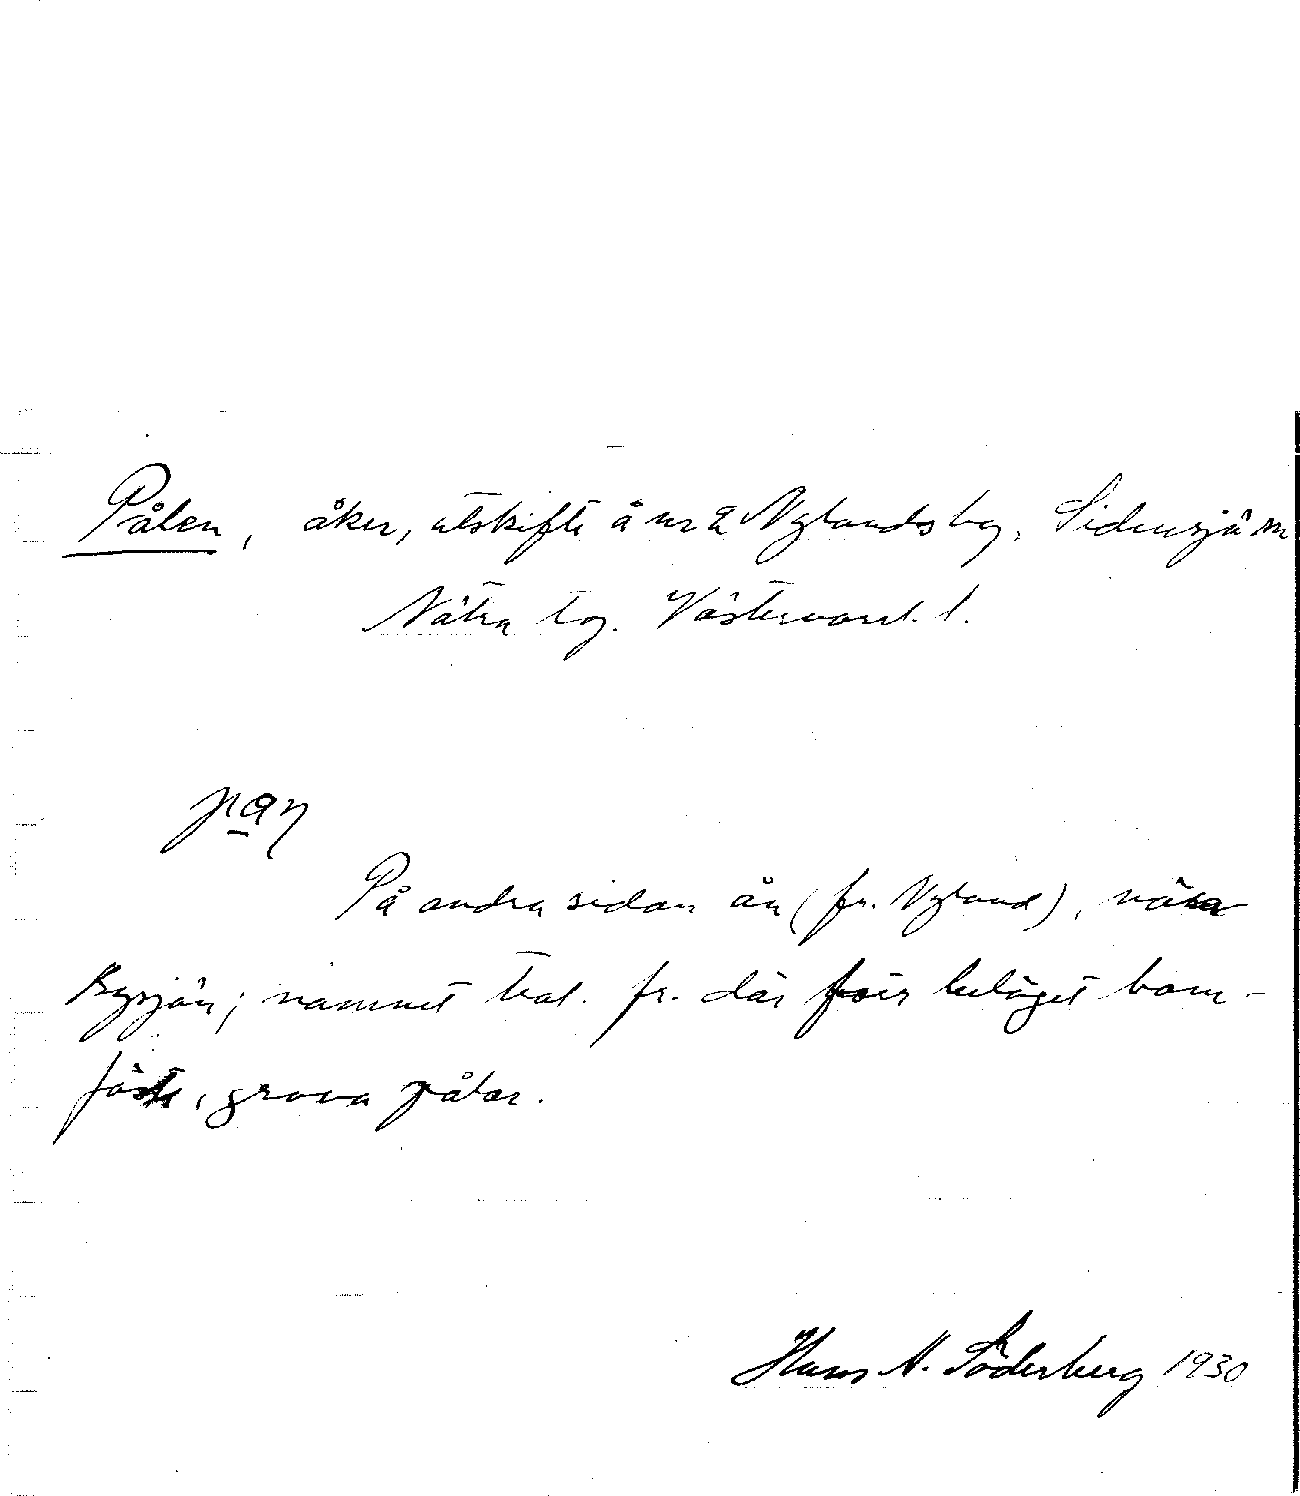 Pålen, åker, utskifte å nr 2 Nyland s by, Sidensjö sn
Nätra tg. Västernorrl. l.
På andra sidan ån (fr. Nyland), nära
Bysjön; namnet trol. fr. där förr beläget bom-
fäste, grova pålar.
Hans N. Söderberg 1930